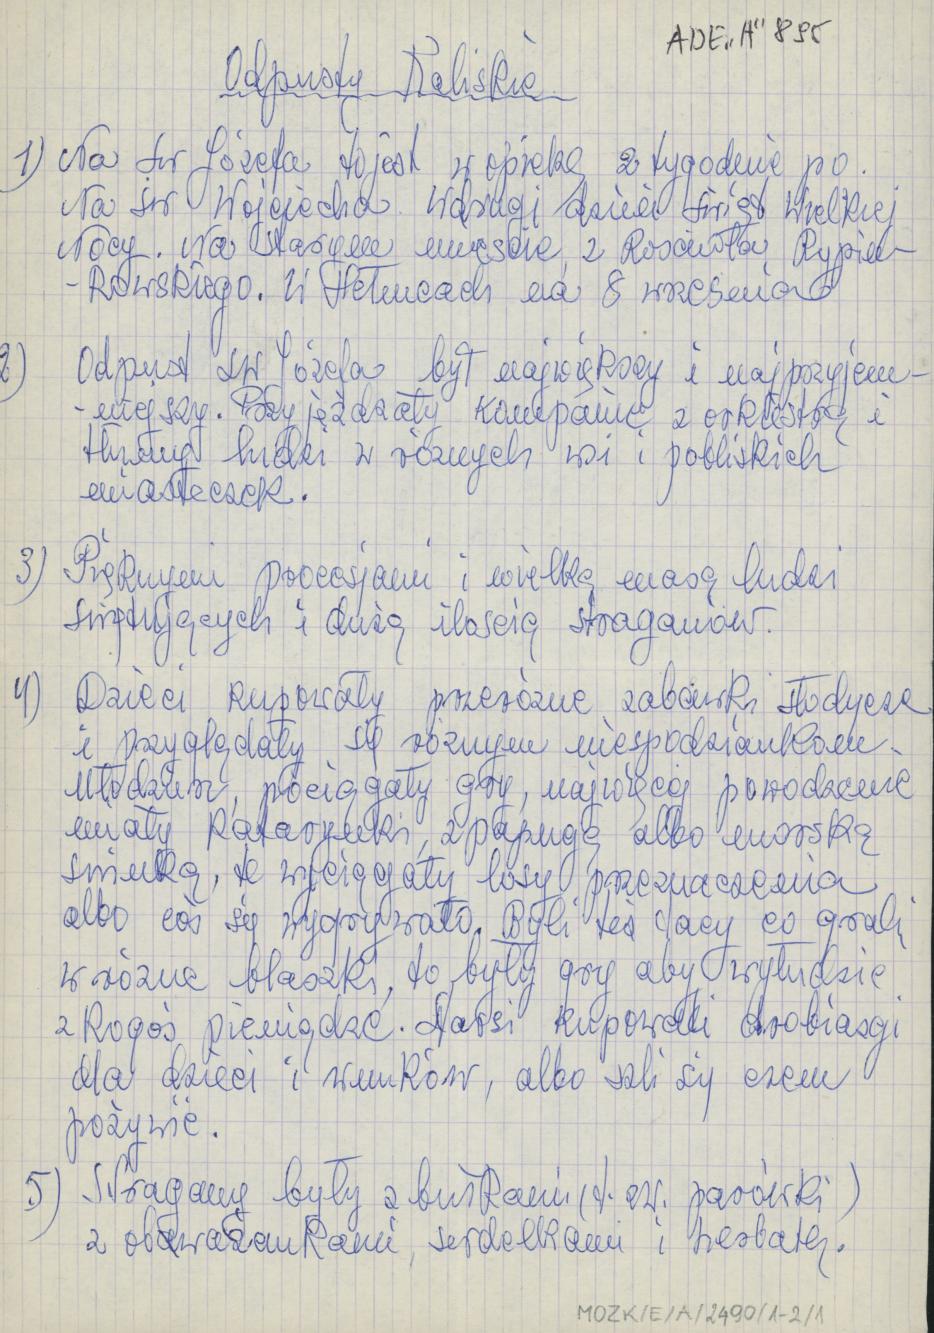 ADE„A" 895
Odpusty Kaliskie
1) Na św Józefa tojest w opiekę 2 tygodnie po.
Na św Wojciecha. Wdrugi dzień świąt Wielkiej
Nocy. Na Starym mieście, z Kościoła Rypin-
-kowskiego. W Hetmcach na 8 września
2) Odpust św Józefa był największy i najprzyjem-
-niejszy. Przyjeżdżały kompanie z orkiestrą i
tłumy ludzi z różnych wsi i pobliskich
miasteczek.
3) Pięknymi procesjami i wielką masą ludzi
świętujących i dużą ilością straganów.
4) Dzieci kupowały przeróżne zabawki słodycze
i przyglądały się różnym niespodziankom.
Młodzież, pociągały gry, najwięcej powodzenie
miały Katarynki, z papugą albo morską
świnką, te wyciągały losy przeznaczenia
albo coś się wygrywało. Byli też tacy co grali
w różne blaszki, to były gry aby wyłudzić
z kogoś pieniądze. Starsi kupowali drobiazgi
dla dzieci i wnuków, albo szli się czem
pożywić.
5) Stragany były z bułkami (t. zw. parówki)
z obwarzankami, serdelkami i herbatą.
MOZK/E/A/2490/1-2/1